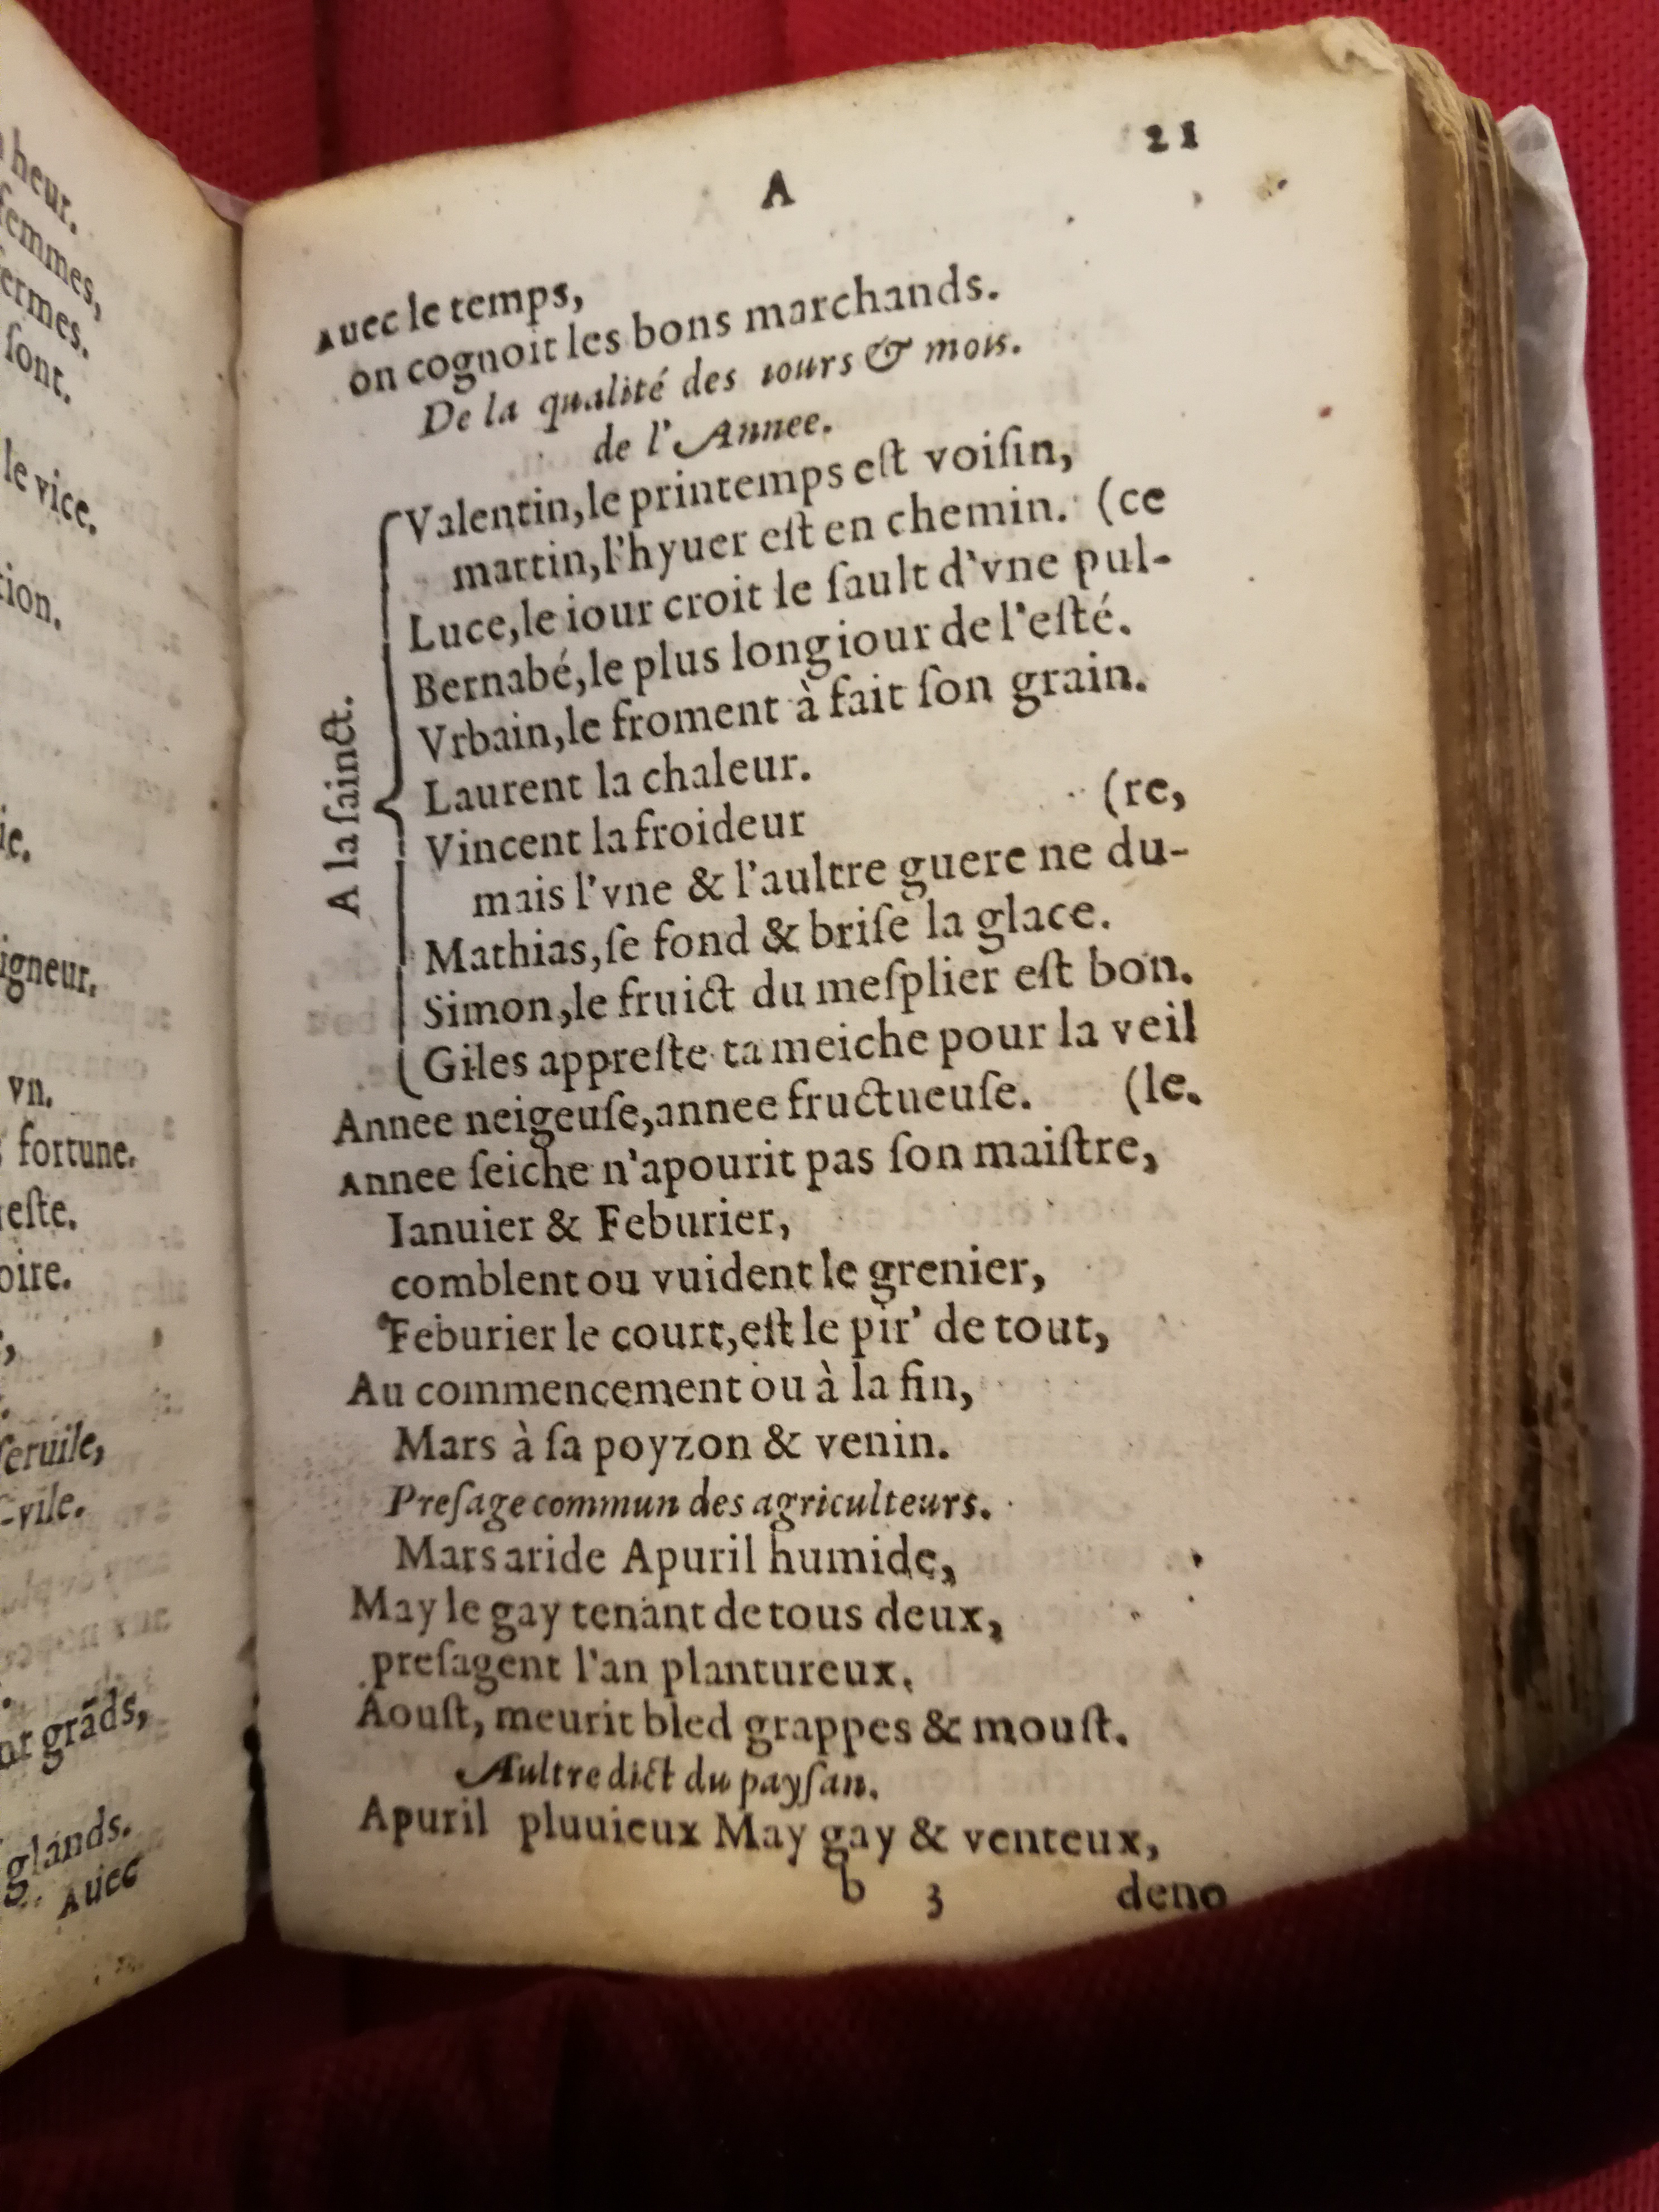 heur.
femmes,
ermes.
ſont.
le vice.
tion.
ie.
igneur.
vn.
fortune.
eſte.
oire.
ſeruile,
vile.
grãds,
glands.
Auec
21
A
Auec le temps,
on cognoit les bons marchands.
De la qualité des iours & mois.
de l'Annee.
A la ſainct.
Valentin, le printemps eſt voiſin,
martin, l'hyuer eſt en chemin. (ce
Luce, le iour croit le ſault d'vne pul-
Bernabé, le plus long iour de l'eſté.
Vrbain, le froment à fait ſon grain.
Laurent la chaleur.
Vincent la froideur (re,
mais l'vne & l'aultre guere ne du-
Mathias, ſe fond & briſe la glace.
Simon, le fruict du meſplier eſt bon.
Giles appreſte ta meiche pour la veil
Annee neigeuſe, annee fructueuſe. (le.
Annee ſeiche n'apourit pas ſon maiſtre,
Ianuier & Feburier,
comblent ou vuident le grenier,
Feburier le court, eſt le pir' de tout,
Au commencement ou à la fin,
Mars à ſa poyzon & venin.
Preſage commun des agriculteurs.
Mars aride Apuril humide,
May le gay tenant de tous deux,
preſagent l'an plantureux.
Aouſt, meurit bled grappes & mouſt.
Aultre dict du payſan.
Apuril pluuieux May gay & venteux,
b 3 deno